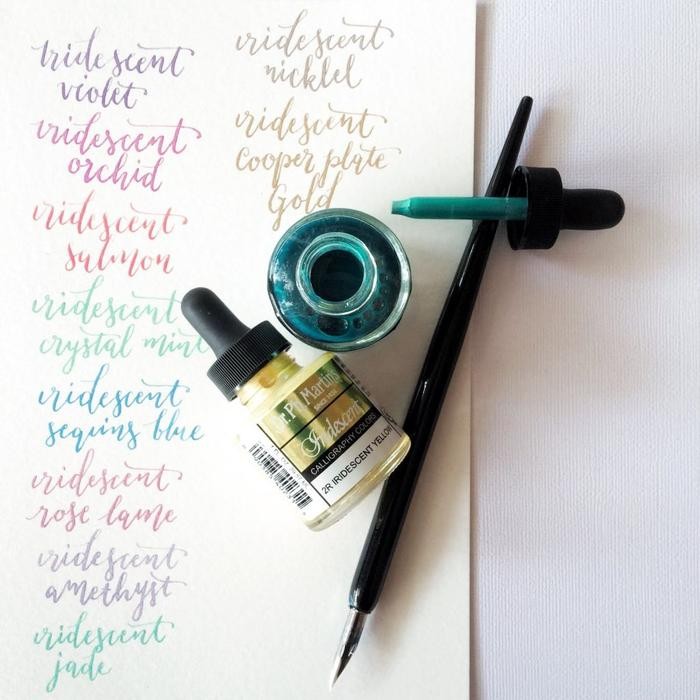 Iridescent
violet
iridescent
orchid
iridescent
salmon
iridescent
crystal mint
iridescent
sequins blue
iridescent
rose lame
iridescent
amethyst
iridescent
jade
iridescent
nicklel
iridescent
Cooper plate
Gold
Dr. Ph. Martin's
SINCE 1934
Iridescent
CALLIGRAPHY COLORS
2R IRIDESCENT YELLOW